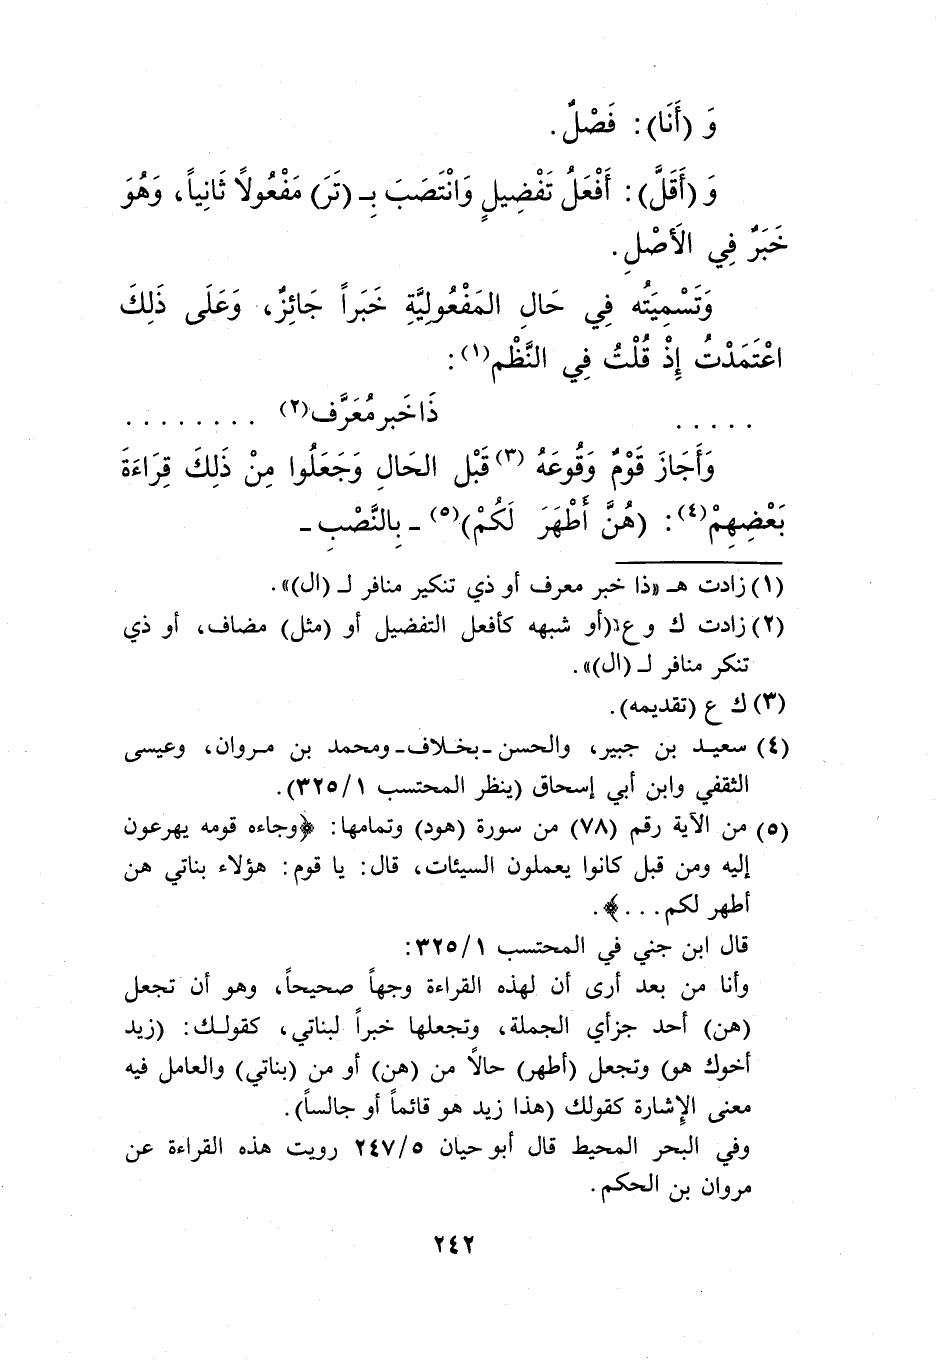 وَ (أَنَا): فَصْلٌ.
وَ (أَقَلَّ): أَفْعَلُ تَفْضِيلٍ وَانْتَصَبَ بِـ (تَرَ) مَفْعُولاً ثَانِياً، وَهُوَ
خَبَرٌ فِي الأَصْلِ.
وَتَسْمِيَتُه فِي حَالِ المَفْعُولِيَّةِ خَبَراً جَائِزٌ، وَعَلَى ذَلِكَ
اعْتَمَدْتُ إِذْ قُلْتُ فِي النَّظْمِ(١):
..... ذَا خَبرٍ مُعَرَّف(٢) ........
وَأَجَازَ قَوْمٌ وَقُوعَهُ (٣) قَبْل الحَالِ وَجَعَلُوا مِنْ ذَلِكَ قِرَاءَةَ
بَعْضِهِمْ(٤): (هُنَّ أَطْهَرَ لَكُمْ)(٥) ـ بِالنَّصْبِ ـ
(١) زادت هـ «ذا خبر معرف أو ذي تنكير منافر لـ (ال)».
(٢) زادت ك و ع «(أو شبهه كأفعل التفضيل أو (مثل) مضاف، أو ذي
تنكر منافر لـ (ال)».
(٣) ك ع (تقديمه).
(٤) سعيد بن جبير، والحسن ـ بخلاف ـ ومحمد بن مروان، وعيسى
الثقفي وابن أبي إسحاق (ينظر المحتسب ٣٢٥/١).
(٥) من الآية رقم (٧٨) من سورة (هود) وتمامها: ﴿وجاءه قومه يهرعون
إليه ومن قبل كانوا يعملون السيئات، قال: يا قوم: هؤلاء بناتي هن
أطهر لكم...﴾.
قال ابن جني في المحتسب ٣٢٥/١:
وأنا من بعد أرى أن لهذه القراءة وجهاً صحيحاً، وهو أن تجعل
(هن) أحد جزأي الجملة، وتجعلها خبراً لبناتي، كقولك: (زيد
أخوك هو) وتجعل (أطهر) حالًا من (هن) أو من (بناتي) والعامل فيه
معنى الإشارة كقولك (هذا زيد هو قائماً أو جالساً).
وفي البحر المحيط قال أبو حيان ٢٤٧/٥ رويت هذه القراءة عن
مروان بن الحكم.
٢٤٢